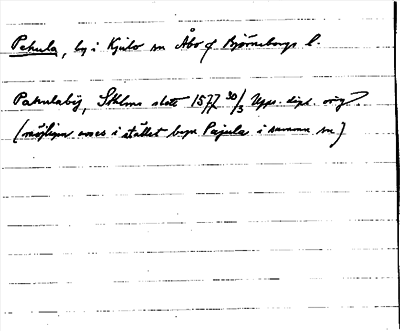 Pakula, by i Kjulo sn Åbo o Björneborgs l.
Pakulaby, Sthlms slott 1577 30/3 Upps. dipl. orig.
(möjligen avses i stället byn Pajula i samma sn)